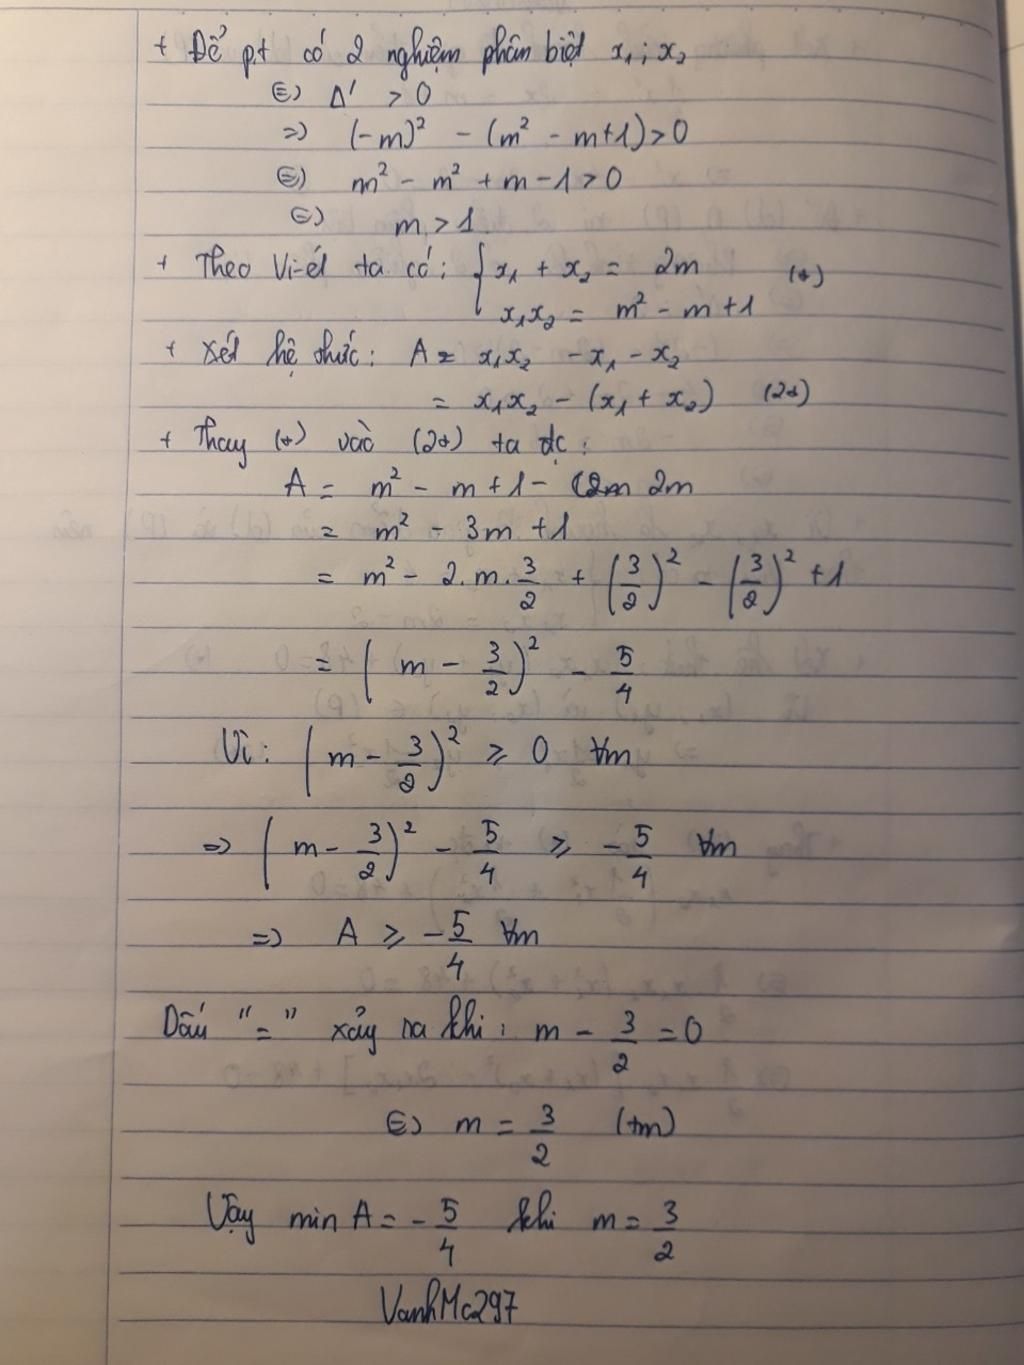 + Để p.t có 2 nghiệm phân biệt x₁; x₂
⇔ Δ' > 0
=> (-m)² - (m² - m+1) > 0
⇔ m² - m² + m - 1 > 0
⇔ m > 1.
+ Theo Vi-ét ta có: { x₁ + x₂ = 2m (*)
x₁x₂ = m² - m + 1
+ Xét hệ thức: A = x₁x₂ - x₁ - x₂
= x₁x₂ - (x₁ + x₂) (2*)
+ Thay (*) vào (2*) ta đc:
A = m² - m + 1 - 2m
= m² - 3m + 1
= m² - 2.m.3/2 + (3/2)² - (3/2)² + 1
= (m - 3/2)² - 5/4
Vì: (m - 3/2)² ≥ 0 ∀m
=> (m - 3/2)² - 5/4 ≥ -5/4 ∀m
=> A ≥ -5/4 ∀m
Dấu "=" xảy ra khi: m - 3/2 = 0
⇔ m = 3/2 (tm)
Vậy min A = -5/4 khi m = 3/2
VanhMc297